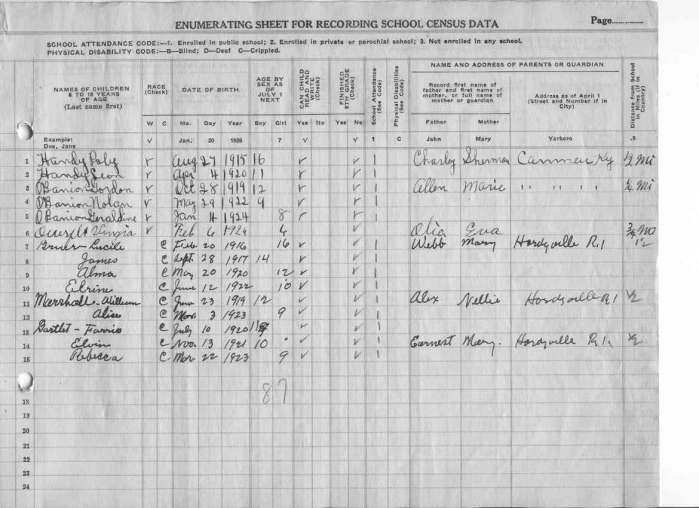 ENUMERATING SHEET FOR RECORDING SCHOOL CENSUS DATA Page
SCHOOL ATTENDANCE CODE:—1. Enrolled in public school; 2. Enrolled in private or parochial school; 3. Not enrolled in any school.
PHYSICAL DISABILITY CODE:—B—Blind; D—Deaf C—Crippled.
NAMES OF CHILDREN 6 TO 18 YEARS OF AGE (Last name first) RACE (Check) DATE OF BIRTH AGE BY SEX AS OF JULY 1 NEXT CHILD READ AND WRITE (Check) FINISHED 8TH GRADE (Check) School Attendance (See Code) Physical Disabilities (See Code) NAME AND ADDRESS OF PARENTS OR GUARDIAN Distance from School in Miles (If in Country)
Record first name of father and first name of mother, or full name of mother or guardian Address as of April 1 (Street and Number if in City)
W C Mo. Day Year Boy Girl Yes No Yes No Father Mother
Example: Doe, Jane V Jan. 20 1928 7 V V 1 C John Mary Verbero .5
1 Handy Roby v Aug 27 1915 16 v v 1 Charley Sherman Cammer Ky ½ Mi
2 Handy Leon v Apr 4 1920 11 v v 1
3 OBanion Gordon v Oct 28 1919 12 v v 1 Allen Marie " " " ¼ Mi
4 OBanion Nolan v May 29 1922 9 v v 1
5 OBanion Geraldine v Jan 4 1924 8 v v 1
6 v Feb 6 1926 6 v 1 Eva
7 Lucile C Feb 20 1916 16 v v 1 Webb Mary Hardyville R.1 1½
8 James C Sept. 28 1917 14 v v 1
9 Alma C May 20 1920 12 v v 1
10 C June 12 1922 10 v v 1
11 Marshall - William C June 23 1919 12 v v 1 Alex Nellie Hardyville R1 ½
12 Alice C Mar. 3 1923 9 v v 1
13 Bartlet - C July 10 1920 v v 1
14 Elvin C Nov. 13 1921 10 v v 1 Earnest Mary. Hardyville R1. ½
15 Rebecca C Mar 22 1923 9 v v 1
16
87
18
19
20
21
22
23
24